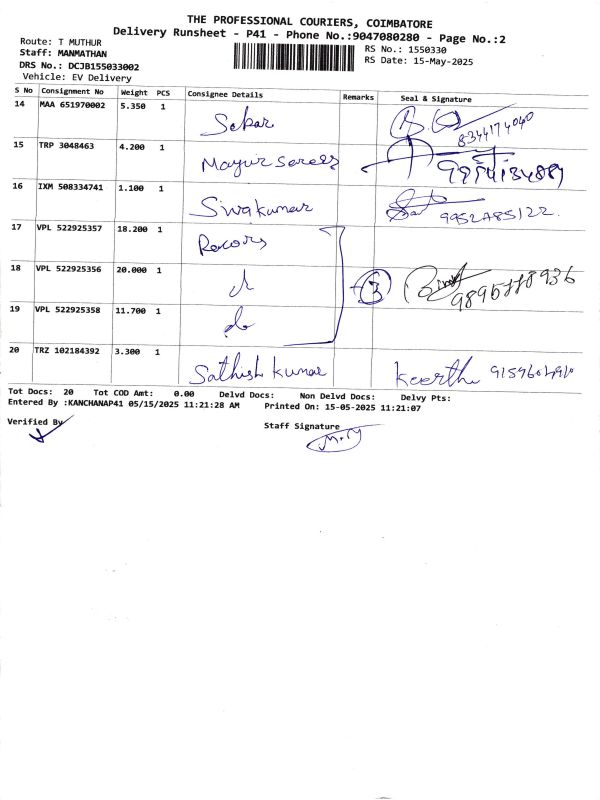 THE PROFESSIONAL COURIERS, COIMBATORE
Delivery Runsheet - P41 - Phone No.:9047080280 - Page No.:2
Route: T MUTHUR
RS No.: 1550330
Staff: MANMATHAN
RS Date: 15-May-2025
DRS No.: DCJB155033002
Vehicle: EV Delivery
S No Consignment No Weight PCS Consignee Details Remarks Seal & Signature
14 MAA 651970002 5.350 1 Sekar 8344174040
15 TRP 3048463 4.200 1 Mayur Sarees
16 IXM 508334741 1.100 1 Sivakumar
17 VPL 522925357 18.200 1
18 VPL 522925356 20.000 1 3
19 VPL 522925358 11.700 1 do
20 TRZ 102184392 3.300 1 Sathish kumar Keerthi
Tot Docs: 20 Tot COD Amt: 0.00 Delvd Docs: Non Delvd Docs: Delvy Pts:
Entered By :KANCHANAP41 05/15/2025 11:21:28 AM Printed On: 15-05-2025 11:21:07
Verified By
Staff Signature